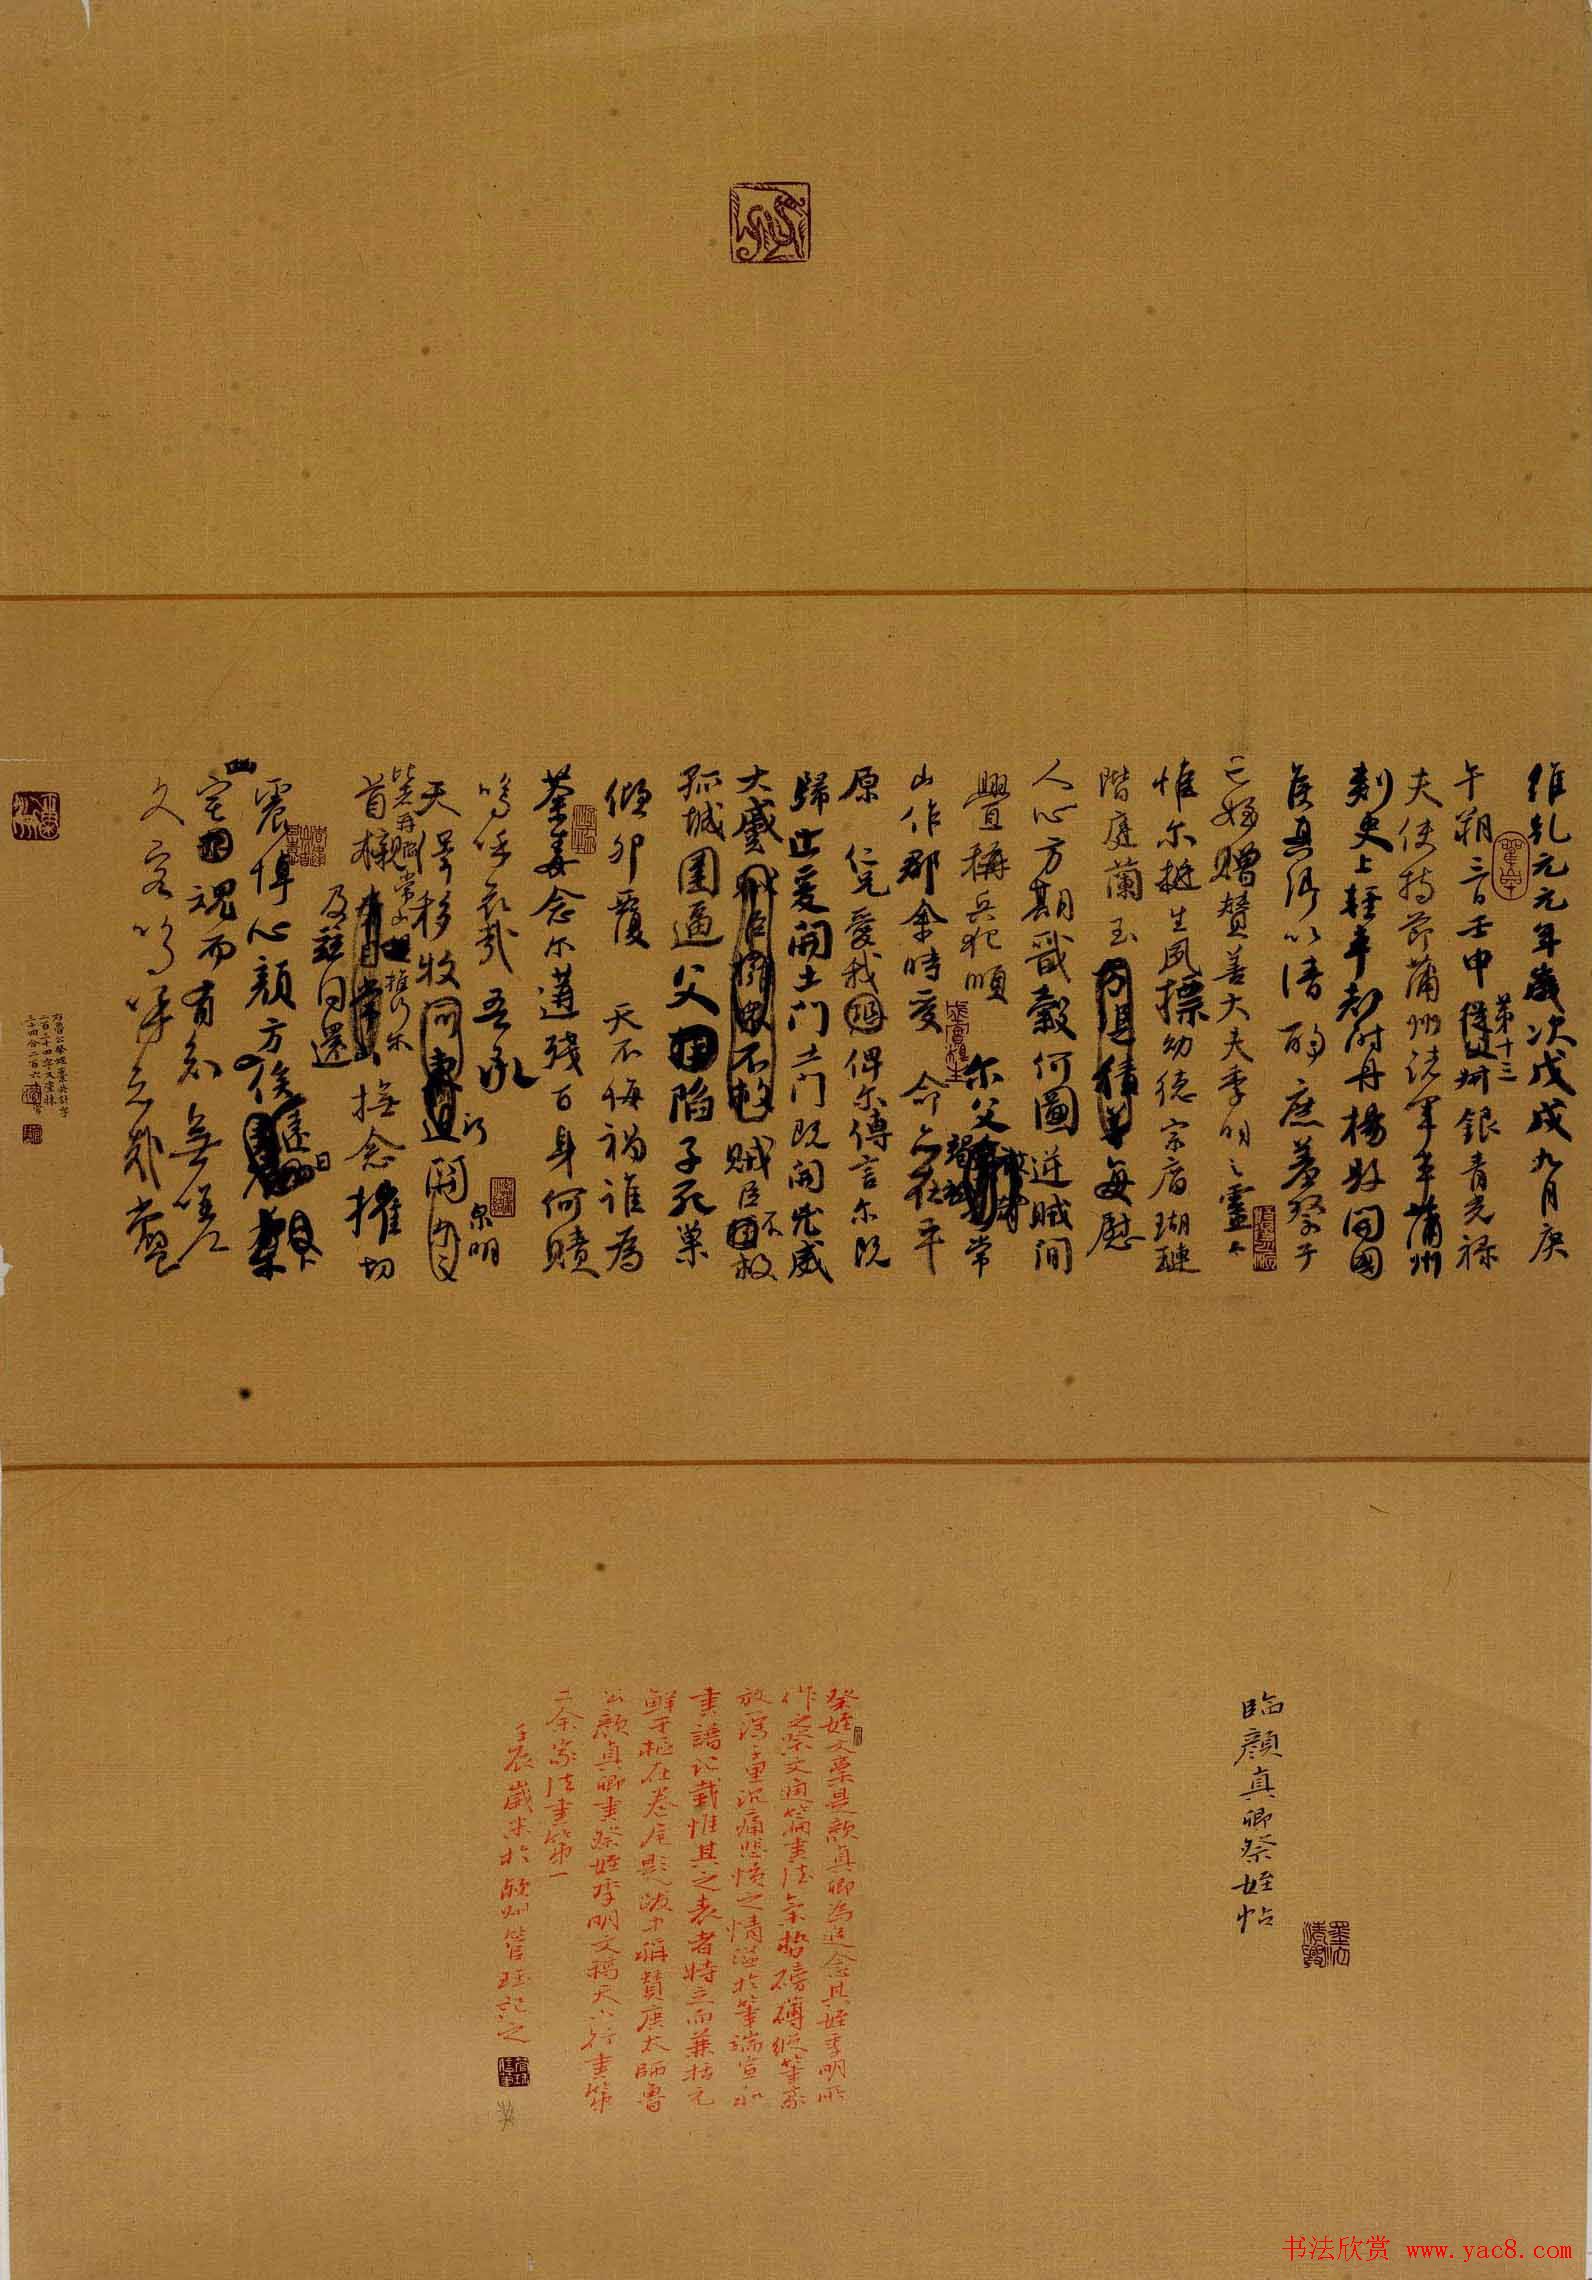 維乾元元年歲次戊戌九月庚
午朔三日壬申第十三叔銀青光祿
夫使持節蒲州諸軍事蒲州
刺史上輕車都尉丹楊縣開國
侯真卿以清酌庶羞祭于
亡姪贈贊善大夫季明之靈
惟爾挺生夙標幼德宗廟瑚璉
階庭蘭玉每慰
人心方期戩穀何圖逆賊間
釁稱兵犯順爾父常
山作郡余時受命亦在平
原仁兄愛我俾爾傳言爾既
歸止爰開土門土門既開兇威
大蹙賊臣不救
孤城圍逼父陷子死巢
傾卵覆天不悔禍誰為
荼毒念爾遘殘百身何贖
嗚呼哀哉吾承
天澤移牧河關泉明
首櫬常山攜爾
及茲同還撫念摧切
震悼心顏方俟遠日
魂而有知無嗟久
客嗚呼哀哉尚饗
臨顏真卿祭姪帖
祭姪文稾是顏真卿為追念其姪季明所
作之祭文通篇書法氣勢磅礴縱筆豪
放沉痛悲憤之情溢於筆端宣和
書譜記載惟其之表者特立而兼括元
鮮于樞在卷尾題跋中稱贊唐太師魯
公顏真卿書祭姪季明文稿天下行書第
二余家法書第一
壬辰歲末於管珏記之
书法欣赏 www.yac8.com